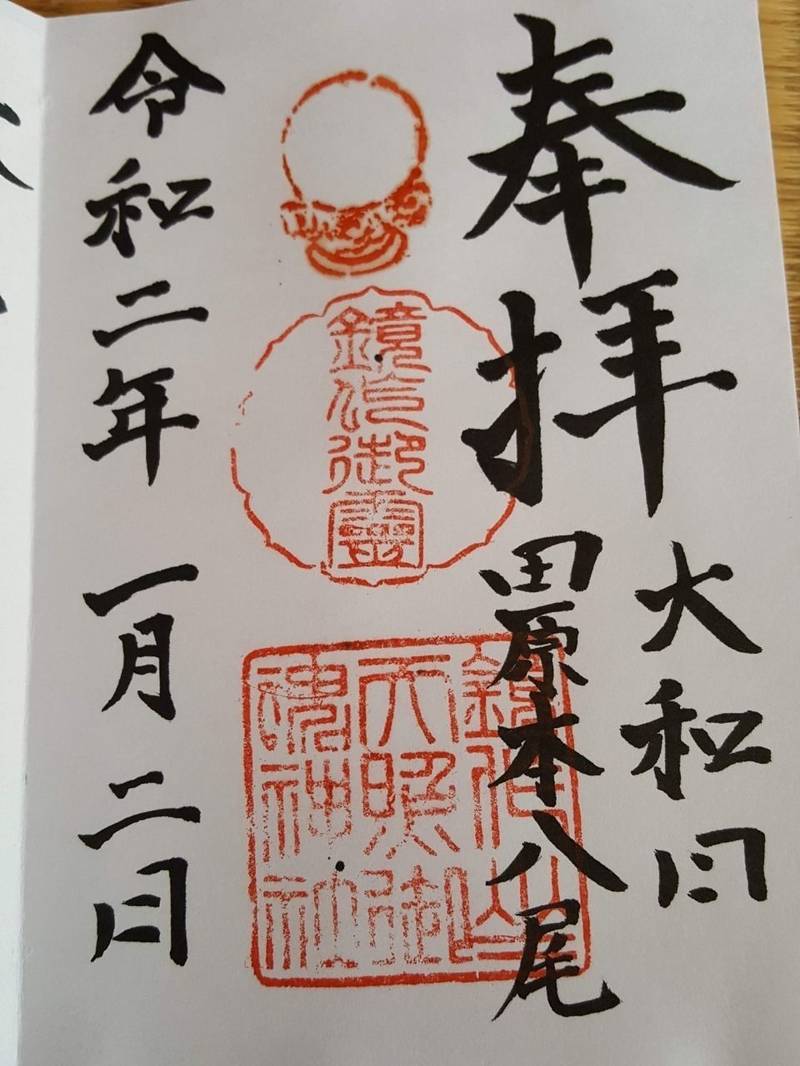 奉拝
大和国
田原本八尾
鏡作御靈
鏡作坐
天照御
魂神社
令和二年 一月二日